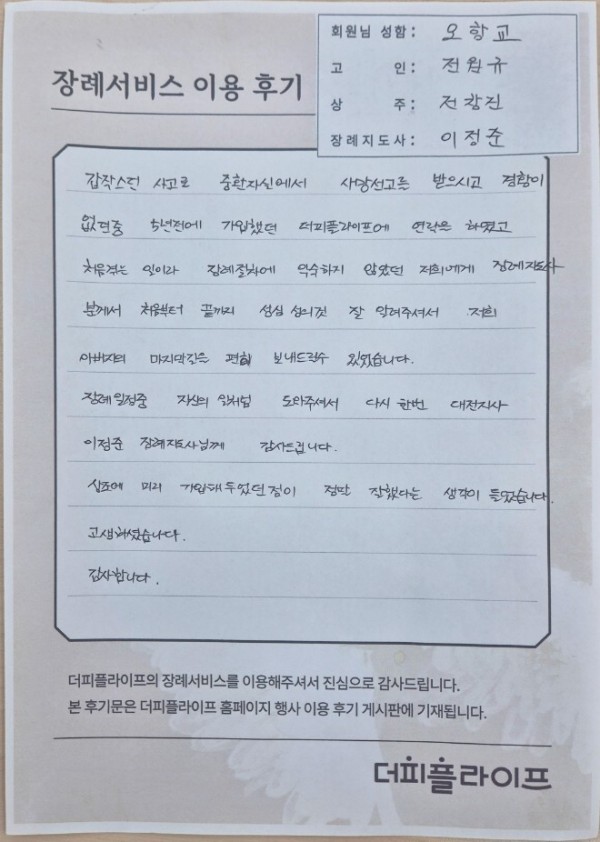 회원님 성함: 오항교
고 인: 전원규
상 주: 전강진
장례지도사: 이정준
장례서비스 이용 후기
갑작스런 사고로 중환자실에서 사망선고를 받으시고 경황이
없던중 5년전에 가입했던 더피플라이프에 연락을 하였고
처음겪는 일이라 장례절차에 익숙하지 않았던 저희에게 장례지도사
분께서 처음부터 끝까지 성심 성의껏 잘 알려주셔서 저희
아버지의 마지막길을 편히 보내드릴수 있었습니다.
장례일정중 자신의 일처럼 도와주셔서 다시 한번 대전지사
이정준 장례지도사님께 감사드립니다.
상조에 미리 가입해 두었던점이 정말 잘했다는 생각이 들었습니다.
고생하셨습니다.
감사합니다.
더피플라이프의 장례서비스를 이용해주셔서 진심으로 감사드립니다.
본 후기문은 더피플라이프 홈페이지 행사 이용 후기 게시판에 기재됩니다.
더피플라이프